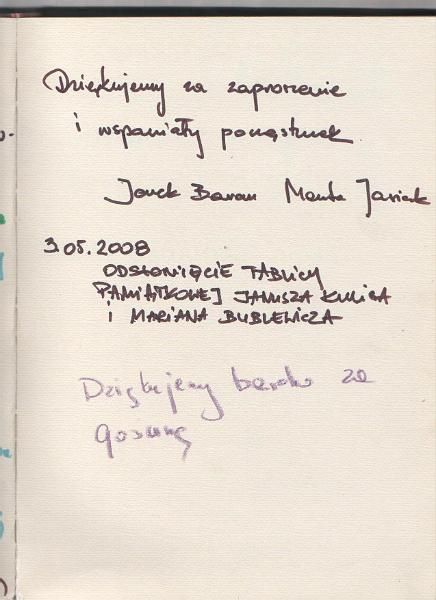 Dziękujemy za zaproszenie
i wspaniały poczęstunek
Jacek Baran Marta Jasiak
3.05.2008
ODSŁONIĘCIE TABLICY
PAMIĄTKOWEJ JANUSZA KULIGA
I MARIANA BUBLEWICZA
Dziękujemy bardzo za
gościnę